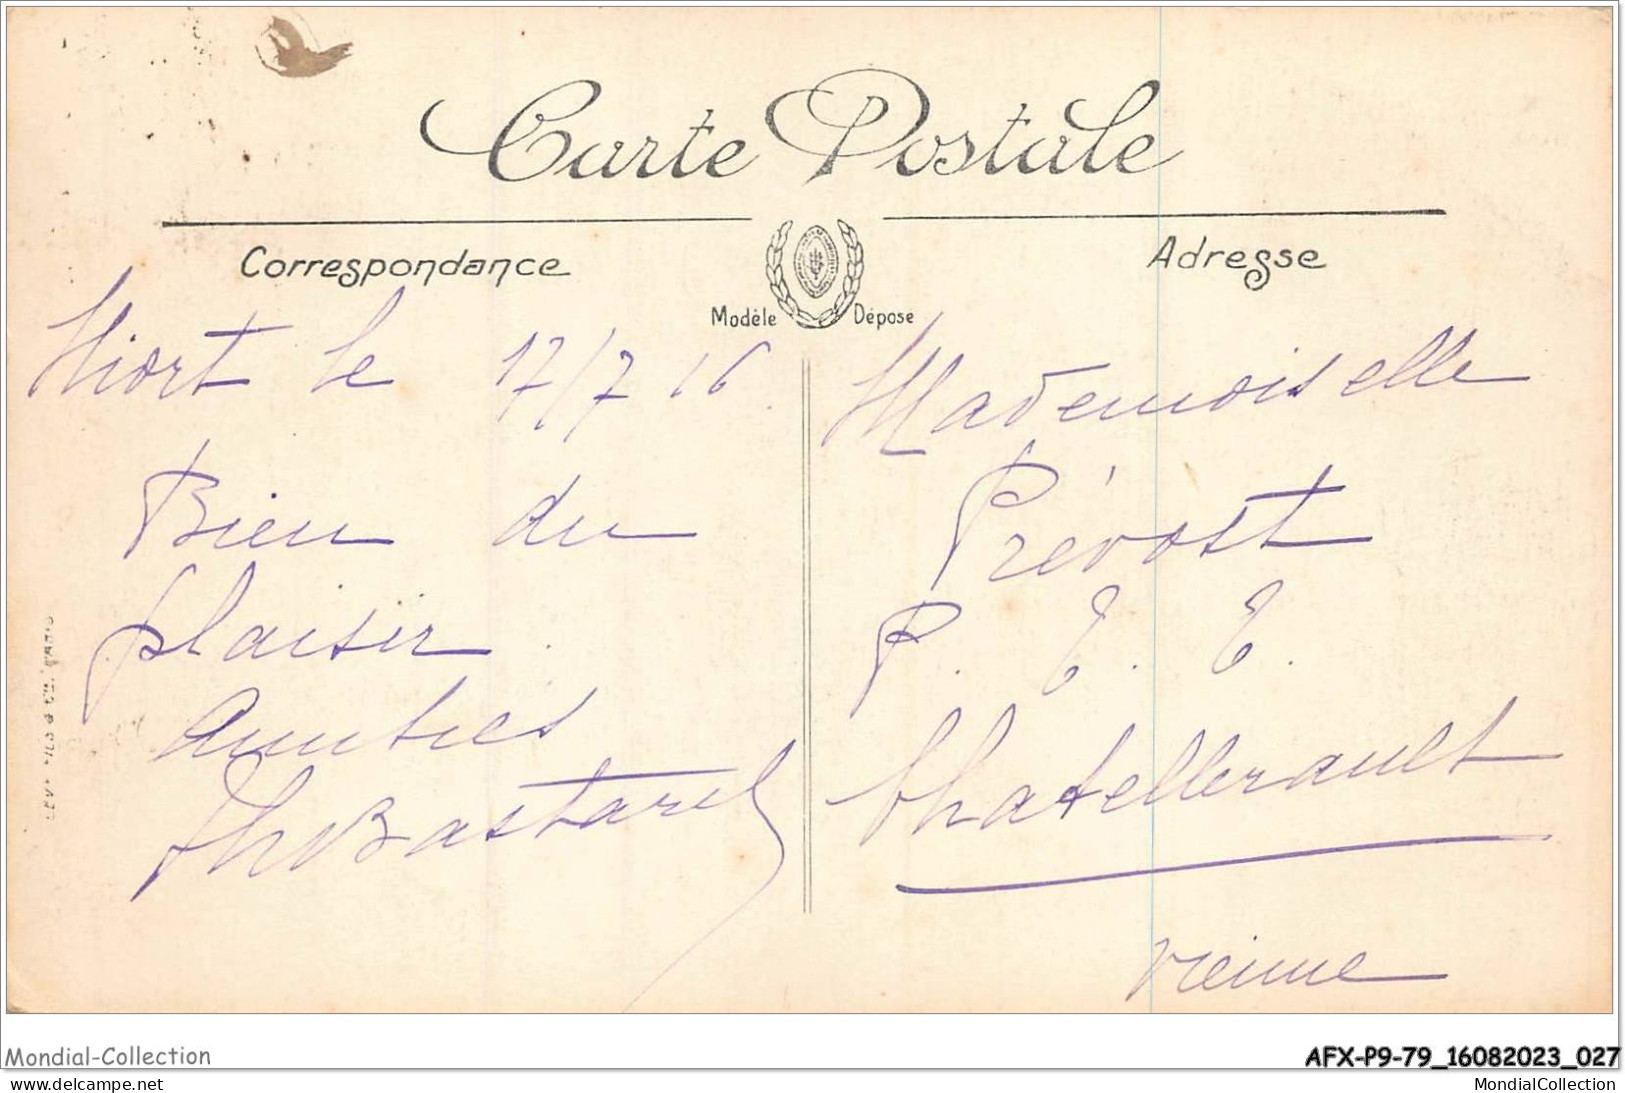 Carte Postale
Correspondance
Adresse
Modèle Déposé
Niort le 17/7 16.
Bien du
plaisir.
Amitiés
Mademoiselle
Prévost
P. T. T.
Chatellerault
Vienne
Mondial-Collection
AFX-P9-79_16082023_027
delcampe.net
MondialCollection